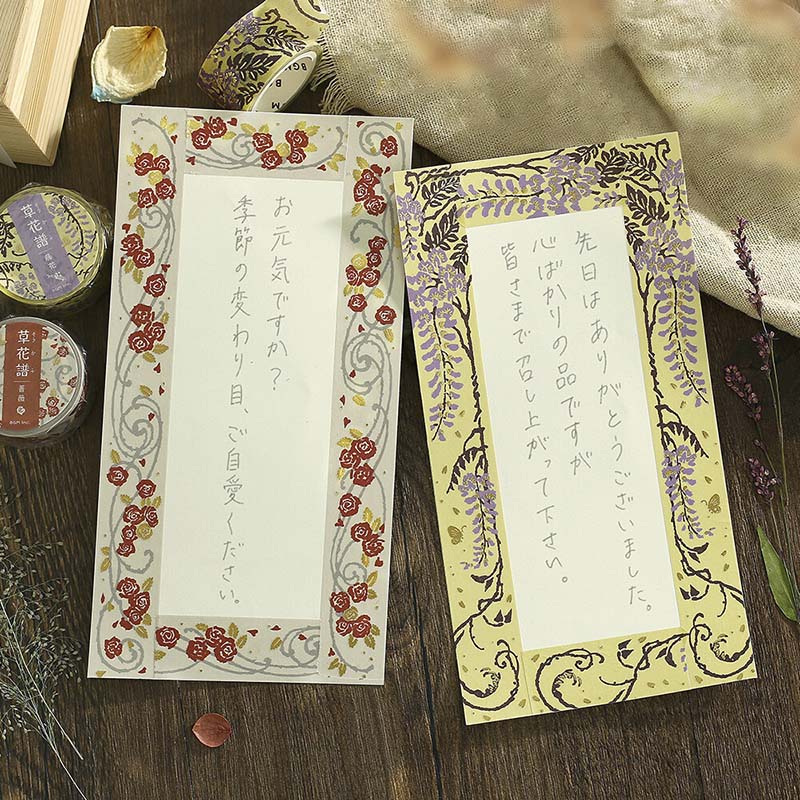 お元気ですか？
季節の変わり目、ご自愛ください。
先日はありがとうございました。
心ばかりの品ですが
皆さまで召し上がって下さい。
草花譜
藤花
草花譜
薔薇
BGM INC.
BGM